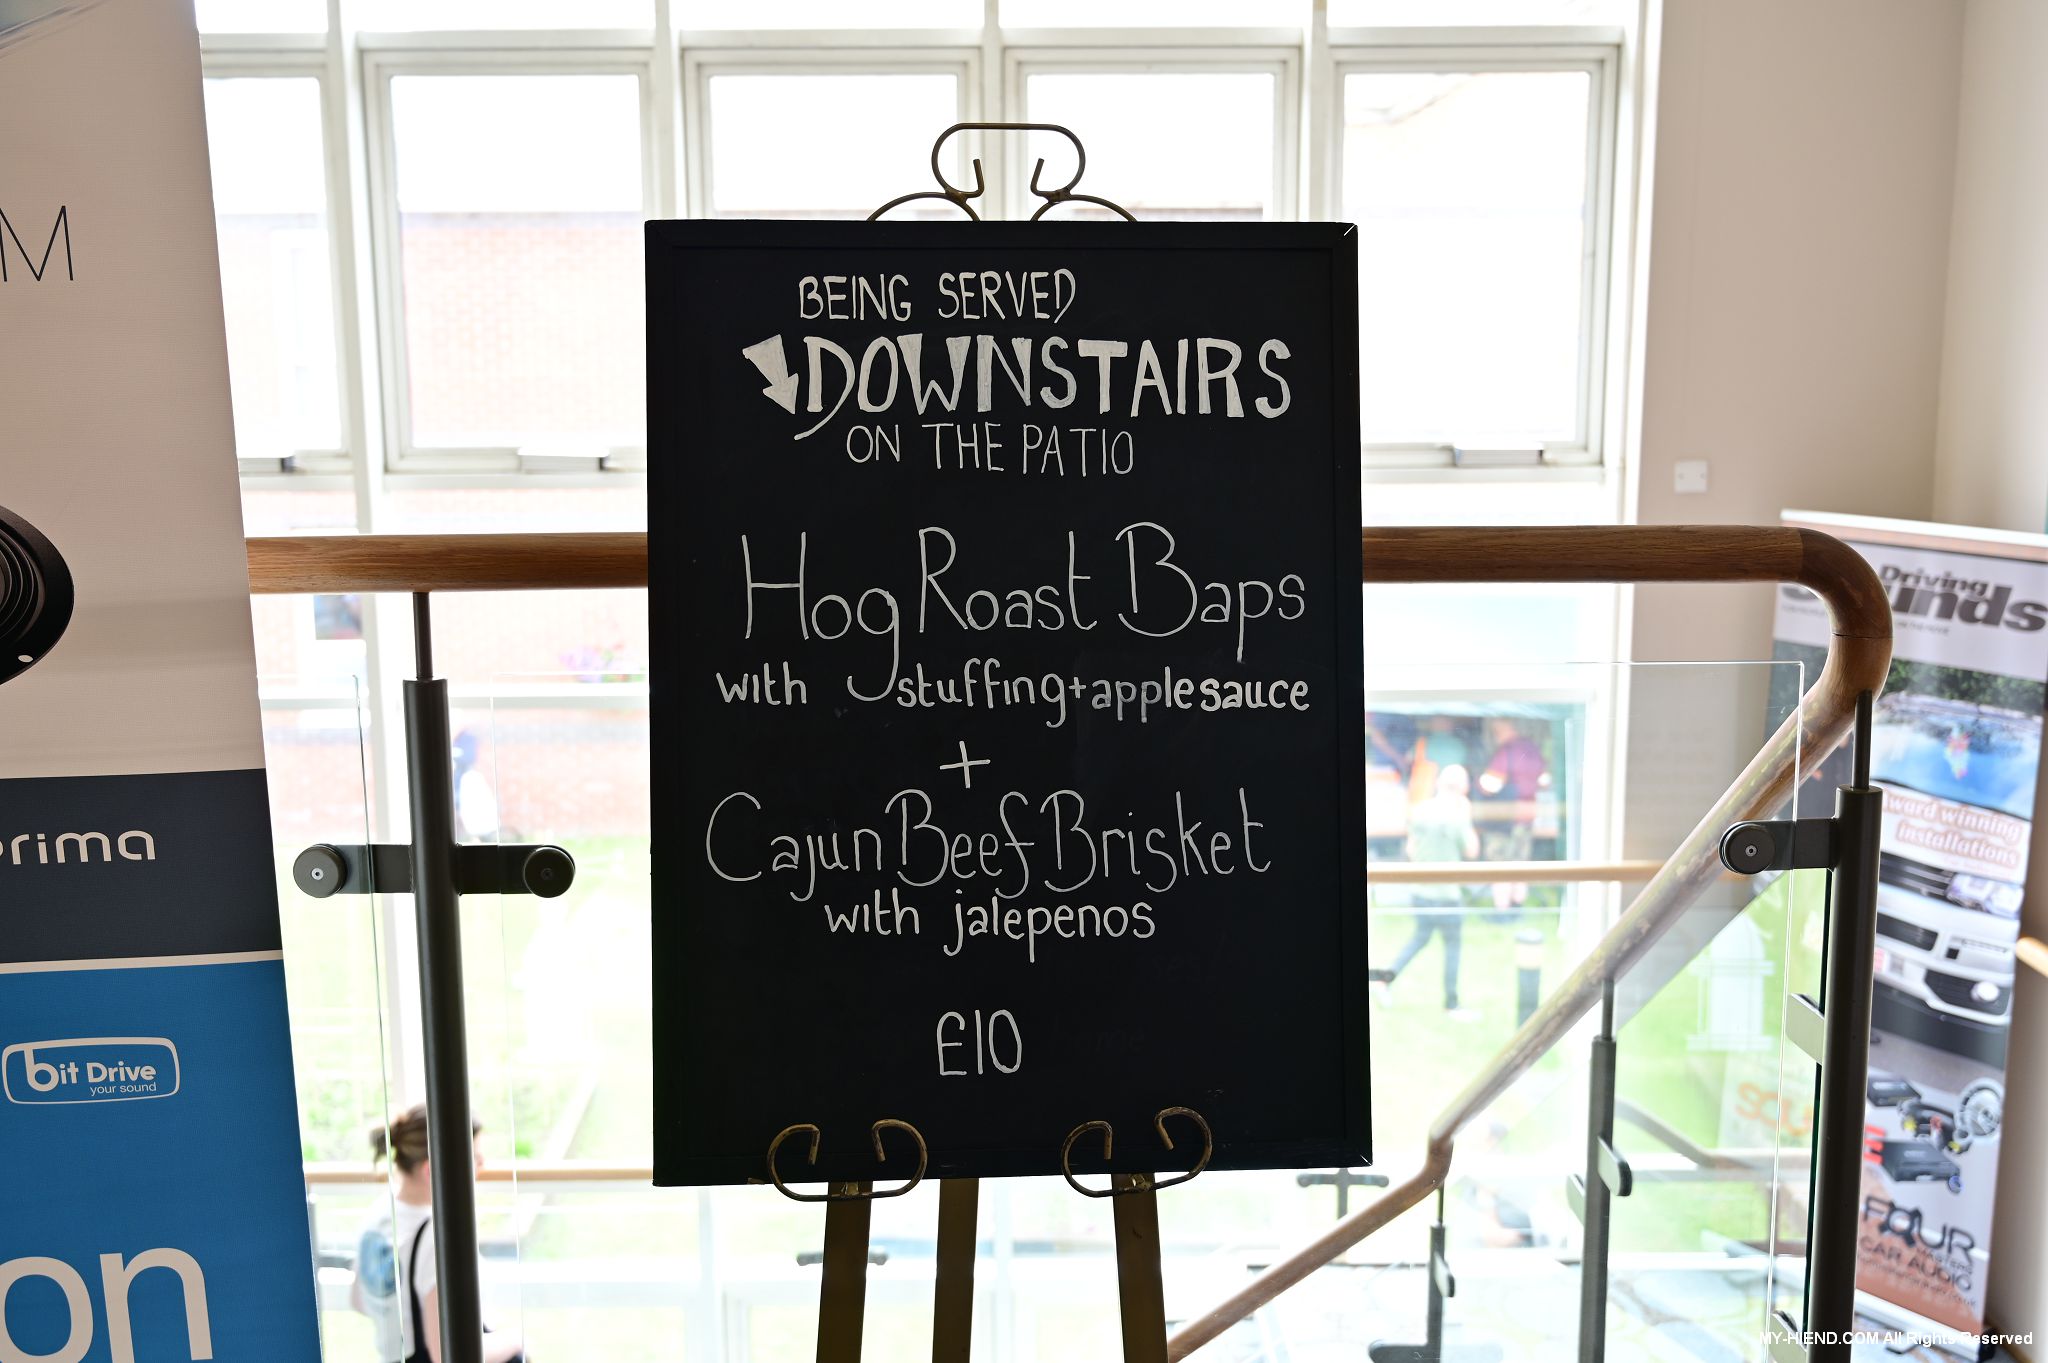 M
rima
bit Drive
your sound
on
BEING SERVED
DOWNSTAIRS
ON THE PATIO
Hog Roast Baps
with stuffing + apple sauce
+
Cajun Beef Brisket
with jalepenos
£10
Driving
Award winning
installations
FOUR
MASTERS
CAR AUDIO
MY-HIEND.COM All Rights Reserved